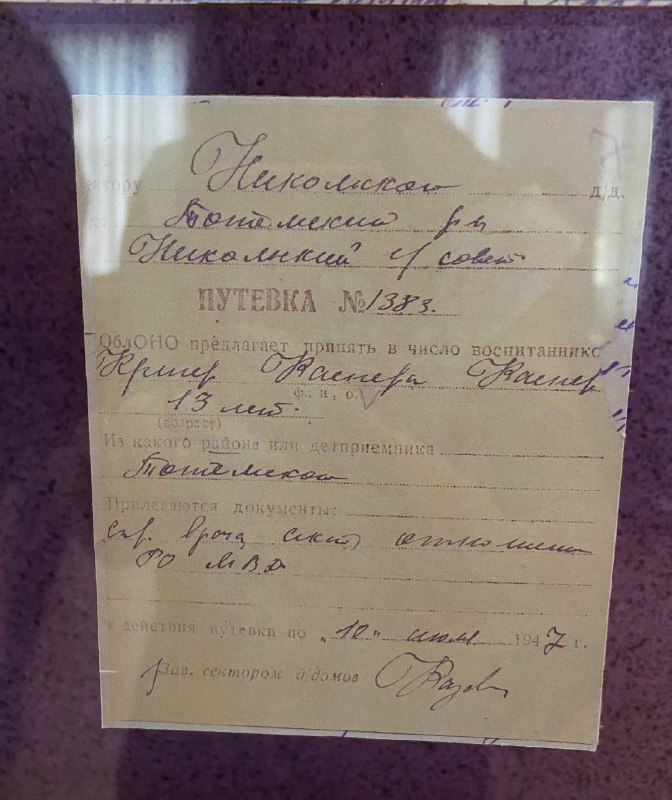 ектору Никольского д/д.
с: Тотемский р-н
Никольский с/совет
ПУТЕВКА № 1383.
ОблОНО предлагает принять в число воспитаннико
Каспера
ф., и., о.
13 лет.
(возраст)
Из какого района или детприемника
Тотемского
Прилагаются документы:
спр. врача, отношение
РО МВД
к действия путевки по „10" июля 1947 г.
Зав. сектором д/домов